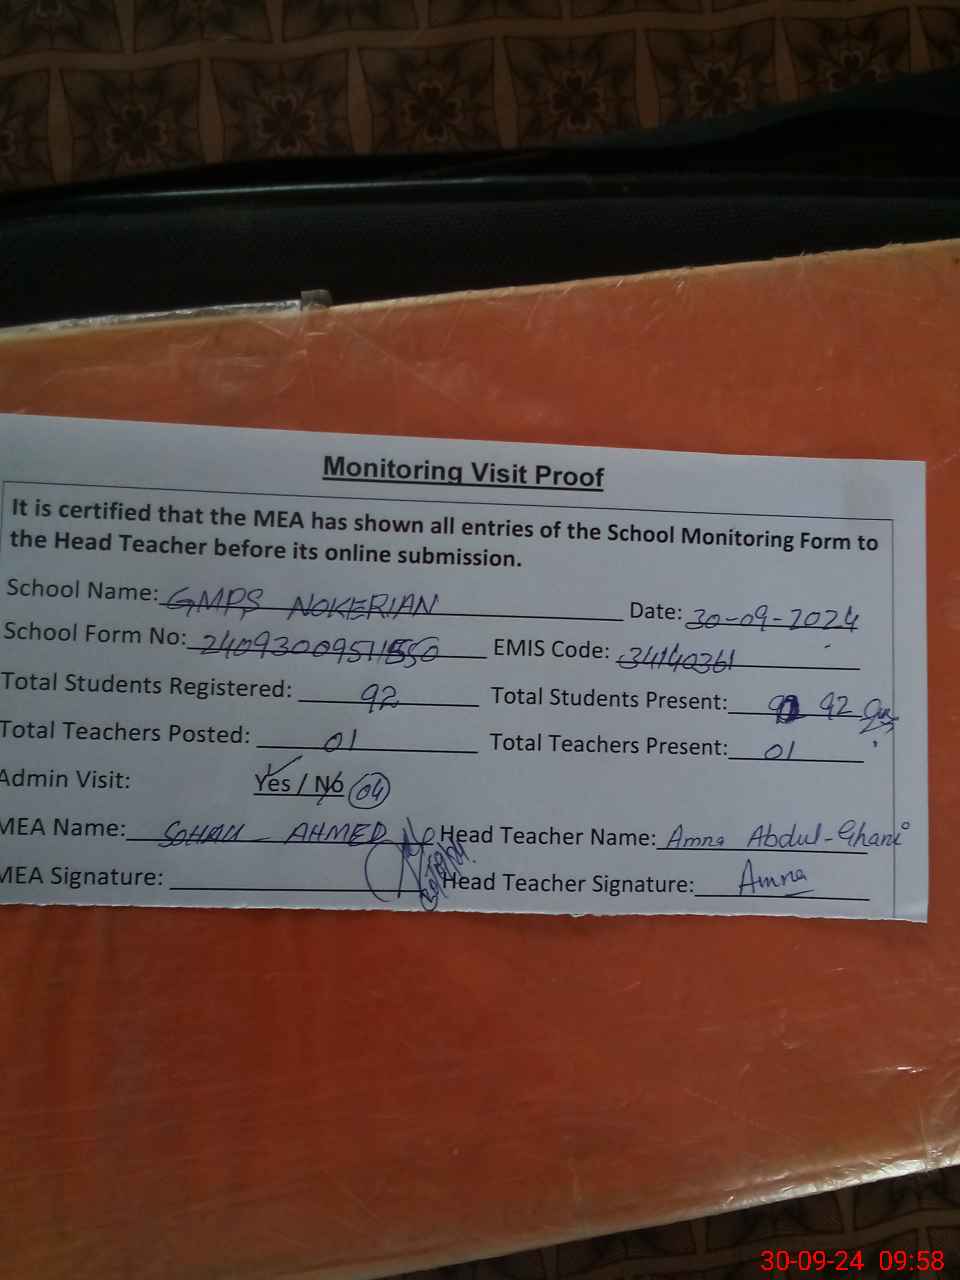 Monitoring Visit Proof
It is certified that the MEA has shown all entries of the School Monitoring Form to
the Head Teacher before its online submission.
School Name: GMPS NOKERIAN Date: 30-09-2024
School Form No: EMIS Code: 34140361
Total Students Registered: 92 Total Students Present: 92
Total Teachers Posted: 01 Total Teachers Present: 01
Admin Visit: Yes / No 04
MEA Name: SOHAIL AHMED Head Teacher Name: Amna Abdul-Ghani
MEA Signature: Head Teacher Signature: Amna
30-09-24 09:58